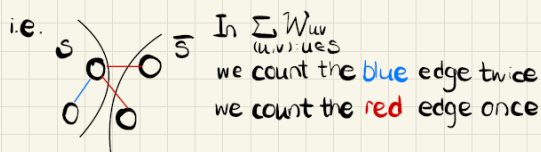 i.e.
S S̅
In Σ Wuv
(u,v):u∈S
we count the blue edge twice
we count the red edge once